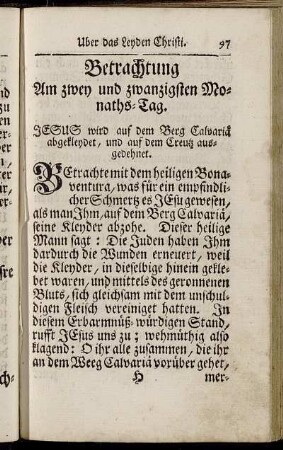 Uber das Leyden Christi. 97
Betrachtung
Am zwey und zwanzigsten Mo-
naths-Tag.
JESUS wird auf dem Berg Calvariä
abgekleydet, und auf dem Creutz aus-
gedehnet.
BEtrachte mit dem heiligen Bona-
ventura, was für ein empfindli-
cher Schmertz es JEsu gewesen,
als man Ihm, auf dem Berg Calvariä,
seine Kleyder abzohe. Dieser heilige
Mann sagt : Die Juden haben Ihm
dardurch die Wunden erneuert, weil
die Kleyder, in dieselbige hinein gekle-
bet waren, und mittels des geronnenen
Bluts, sich gleichsam mit dem unschul-
digen Fleisch vereiniget hatten. In
diesem Erbarmnüß-würdigen Stand,
rufft JEsus uns zu ; wehmüthig also
klagend: O ihr alle zusammen, die ihr
an dem Weeg Calvariä vorüber gehet,
H mer-